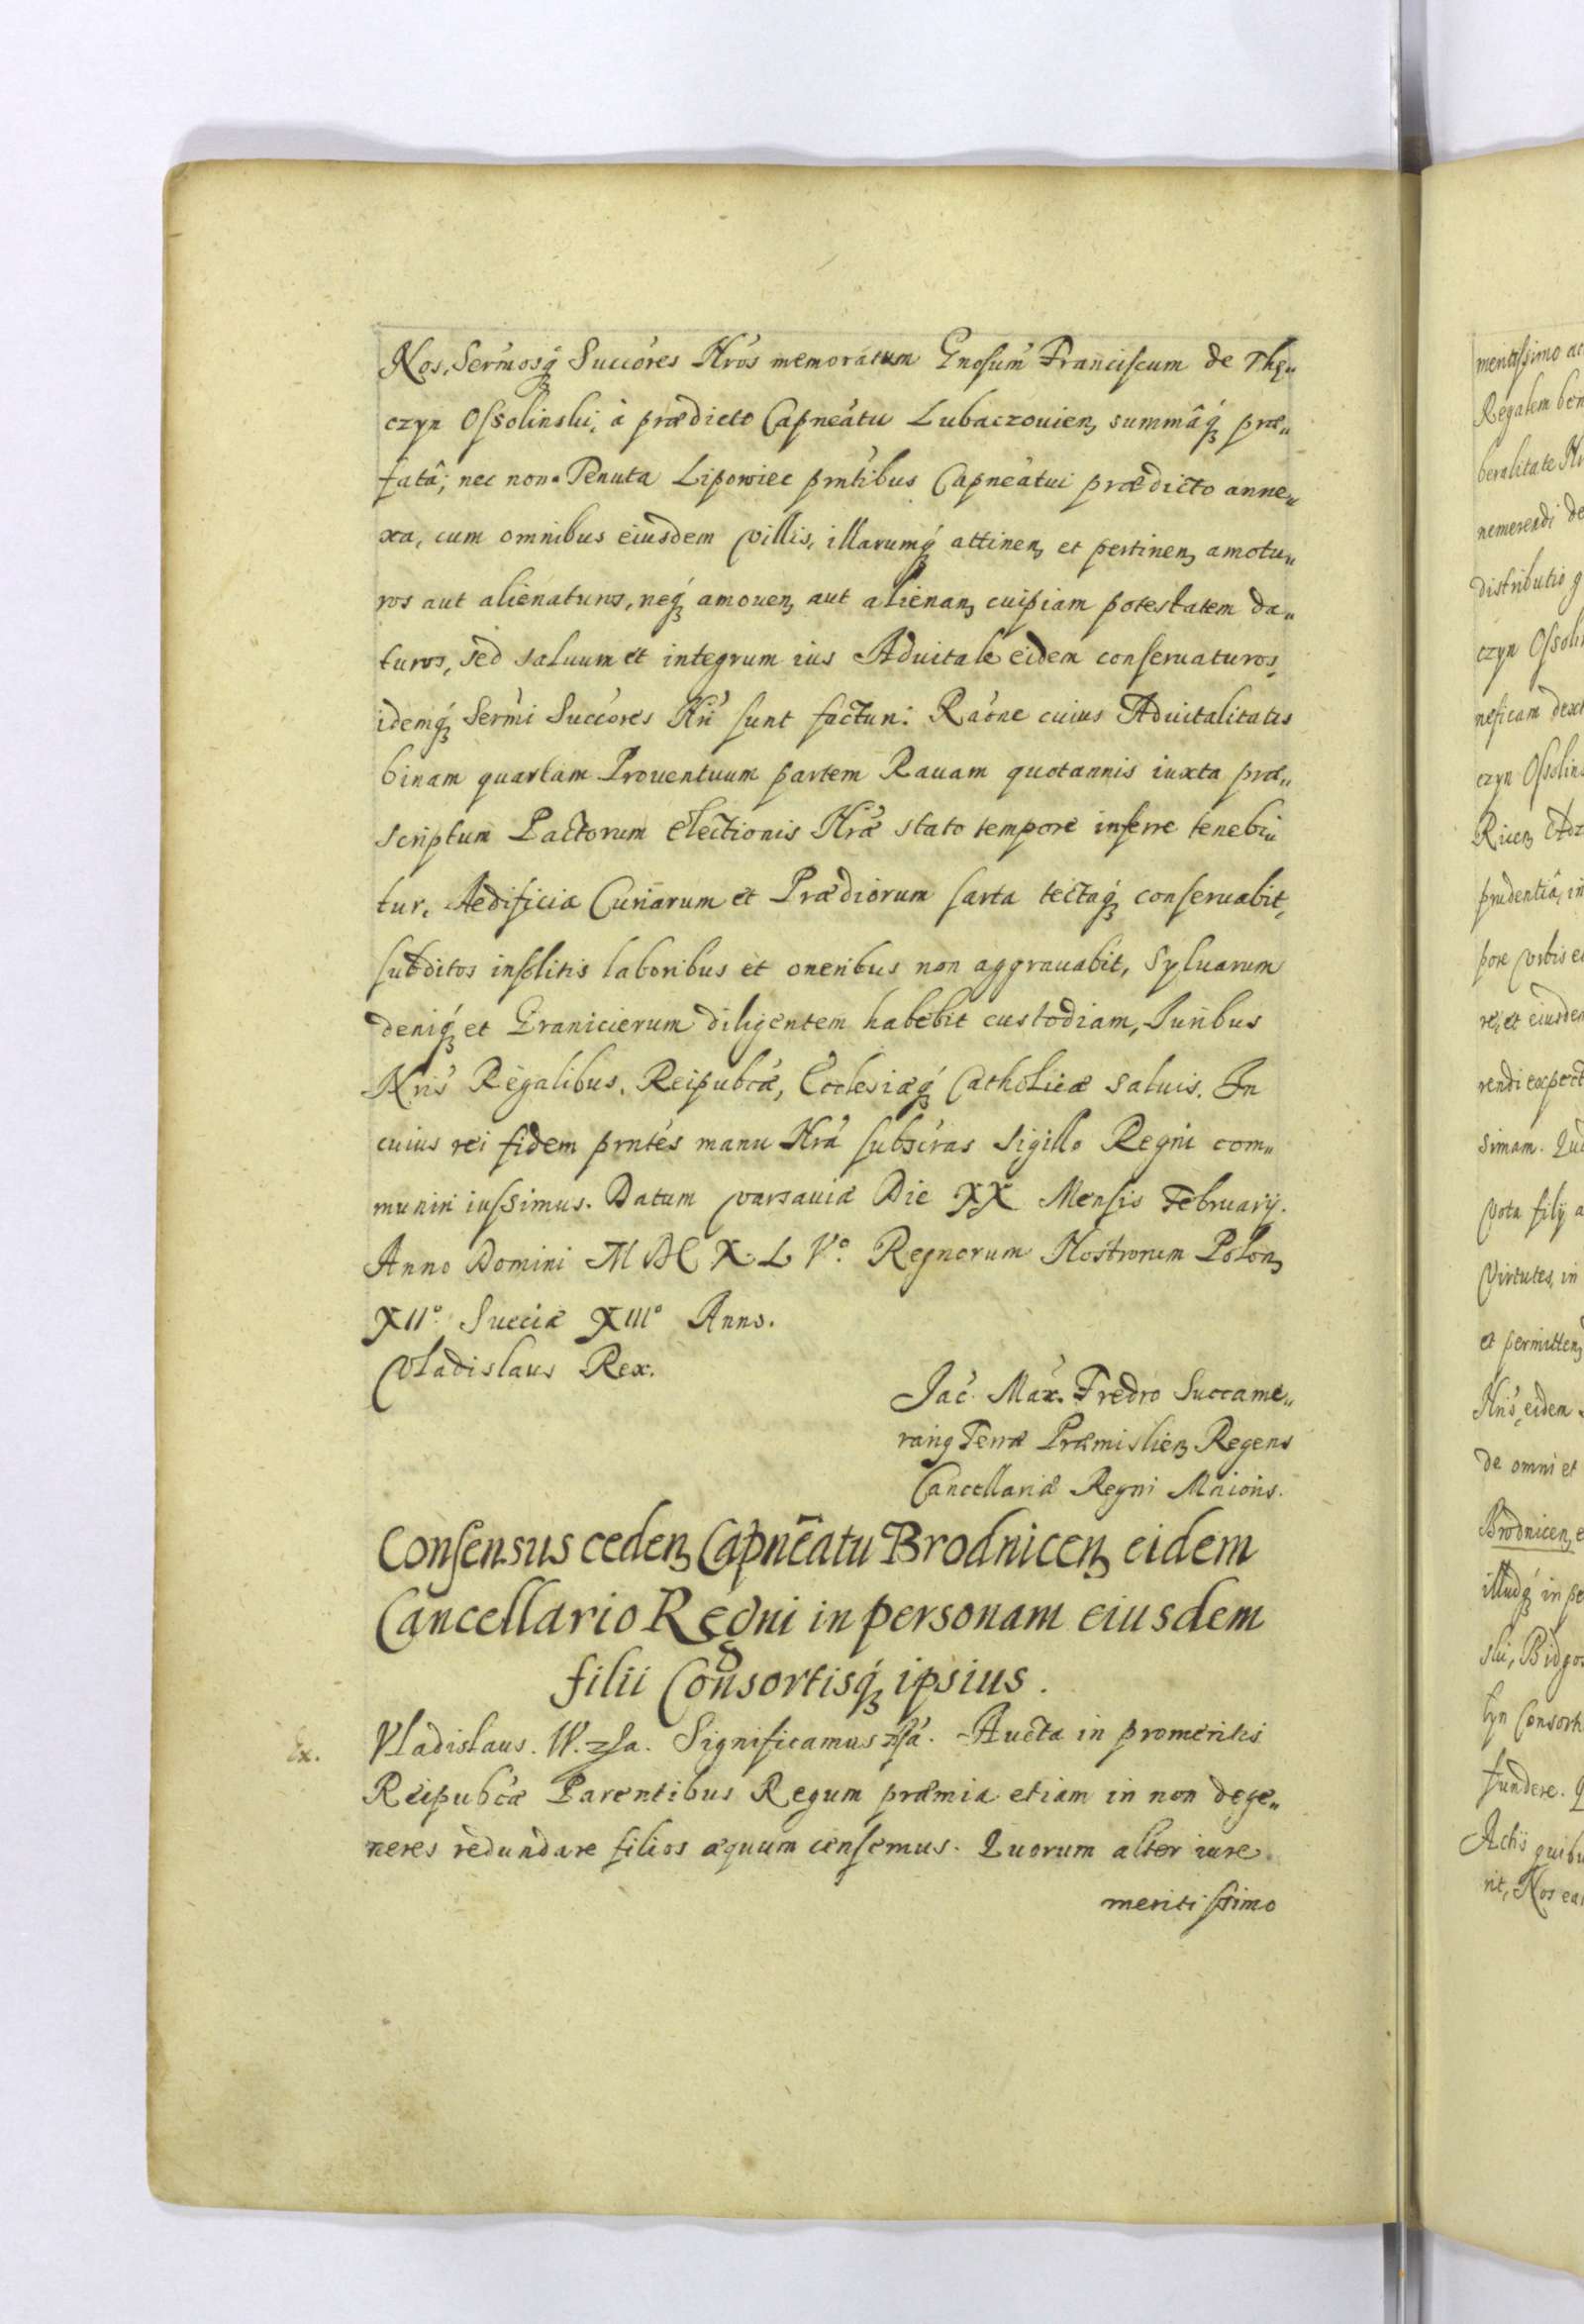 Nos, Sermosq́ Succores Nros memoratum Gnosum Franciscum de Thę„
czyn Ossolinski, à prædicto Capneatu Lubaczouien, summâq́ præ„
fatâ; nec non Tenuta Lipowiec prntibus Capneatui prædicto anne„
xa, cum omnibus eiusdem villis, illarumq́ attinen et pertinen amotu„
ros aut alienaturos, neq́ amouen aut alienan cuipiam potestatem da„
turos, sed saluum et integrum ius Aduitale eidem conseruaturos,
idemq́ Sermi Succores Nri sunt facturi. Raone cuius Aduitalitatis
binam quartam Prouentuum partem Rauam quotannis iuxta præ„
scriptum Pactorum electionis Nræ stato tempore inferre tenebi„
tur, Aedificia Curiarum et Prædiorum sarta tectaq́ conseruabit,
subditos insolitis laboribus et oneribus non aggrauabit, Syluarum
deniq́ et Granicierum diligentem habebit custodiam, Iuribus
Nris Regalibus, Reipubcæ, Ecclesiæq́ Catholicæ saluis. In
cuius rei fidem prntes manu Nra subscras sigillo Regni com„
muniri iussimus. Datum Varsauiæ Die XX Mensis February.
Anno Domini MDCXLVº. Regnorum Nostrorum Polon
XIIº. Sueciæ XIIIº Anno.
Vladislaus Rex.
Jac. Max. Fredro Succame„
rariq Terræ Præmislien Regens
Cancellariæ Regni Maioris.
Consensus ceden Capneatu Brodnicen eidem
Cancellario Regni in personam eiusdem
filii Consortisq́ ipsius.
Ex. Vladislaus. IV. zsa. Significamus zsa. Aucta in promeritis
Reipubcæ Parentibus Regum præmia etiam in non dege„
neres redundare filios æquum censemus. Quorum alter iure
meritissimo